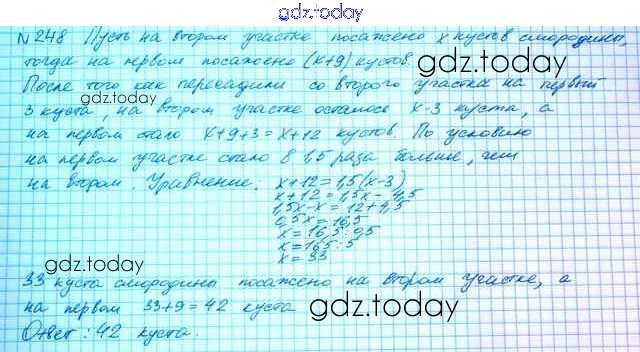 gdz.today
№ 248 Пусть на втором участке посажено x кустов смородины,
тогда на первом посажено (x+9) кустов.
gdz.today
После того как пересадили со второго участка на первый
gdz.today
3 куста, на втором участке осталось x-3 куста, а
на первом стало x+9+3=x+12 кустов. По условию
на первом участке стало в 1,5 раза больше, чем
на втором Уравнение: x+12=1,5(x-3)
x+12=1,5x-4,5
1,5x-x=12+4,5
0,5x=16,5
x=16,5:0,5
x=165:5
x=33
gdz.today
33 куста смородины посажено на втором участке, а
на первом 33+9=42 куста
gdz.today
Ответ: 42 куста.